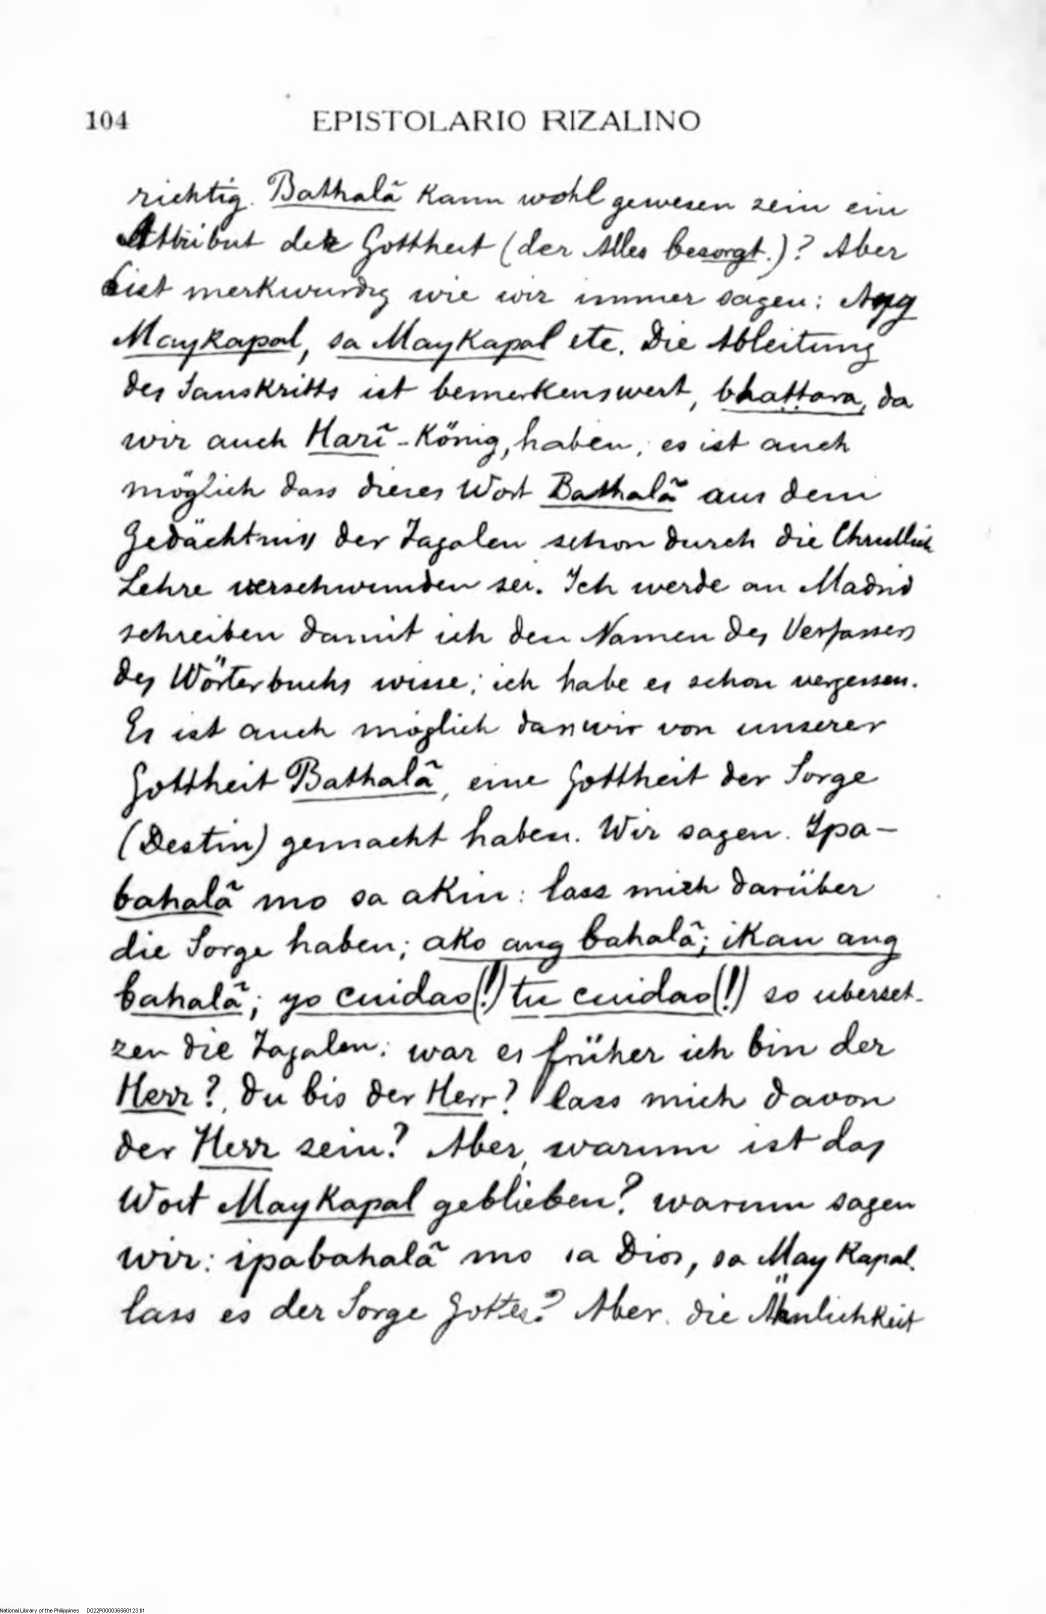 104 EPISTOLARIO RIZALINO
richtig. Bathalã kann wohl gewesen sein ein
Attribut der Gottheit (der Alles besorgt.)? Aber
ist merkwurdig wie wir immer sagen: Ang
Maykapal, sa Maykapal etc. Die Ableitung
des Sanskritts ist bemerkenswert, bhattara, da
wir auch Harĩ-König, haben; es ist auch
möglich dass dieses Wort Bathalã aus dem
Gedächtniss der Tagalen schon durch die Christlich
Lehre verschwunden sei. Ich werde an Madrid
schreiben damit ich den Namen des Verfassers
des Wörterbuchs wisse; ich habe es schon vergessen.
Es ist auch möglich dass wir von unserer
Gottheit Bathalã, eine Gottheit der Sorge
(Destin) gemacht haben. Wir sagen. Ipa-
bahalã mo sa akin: lass mich darüber
die Sorge haben; ako ang bahalã; ikau ang
bahalã; yo cuidao(!) tu cuidao(!) so uberset-
zen die Tagalen: war es früher ich bin der
Herr?, du bis der Herr? lass mich davon
der Herr sein? Aber, warum ist das
Wort Maykapal geblieben? warum sagen
wir: ipabahalã mo sa Dios, sa Maykapal.
lass es der Sorge Gottes? Aber. die Äknlichkeit
National Library of the Philippines